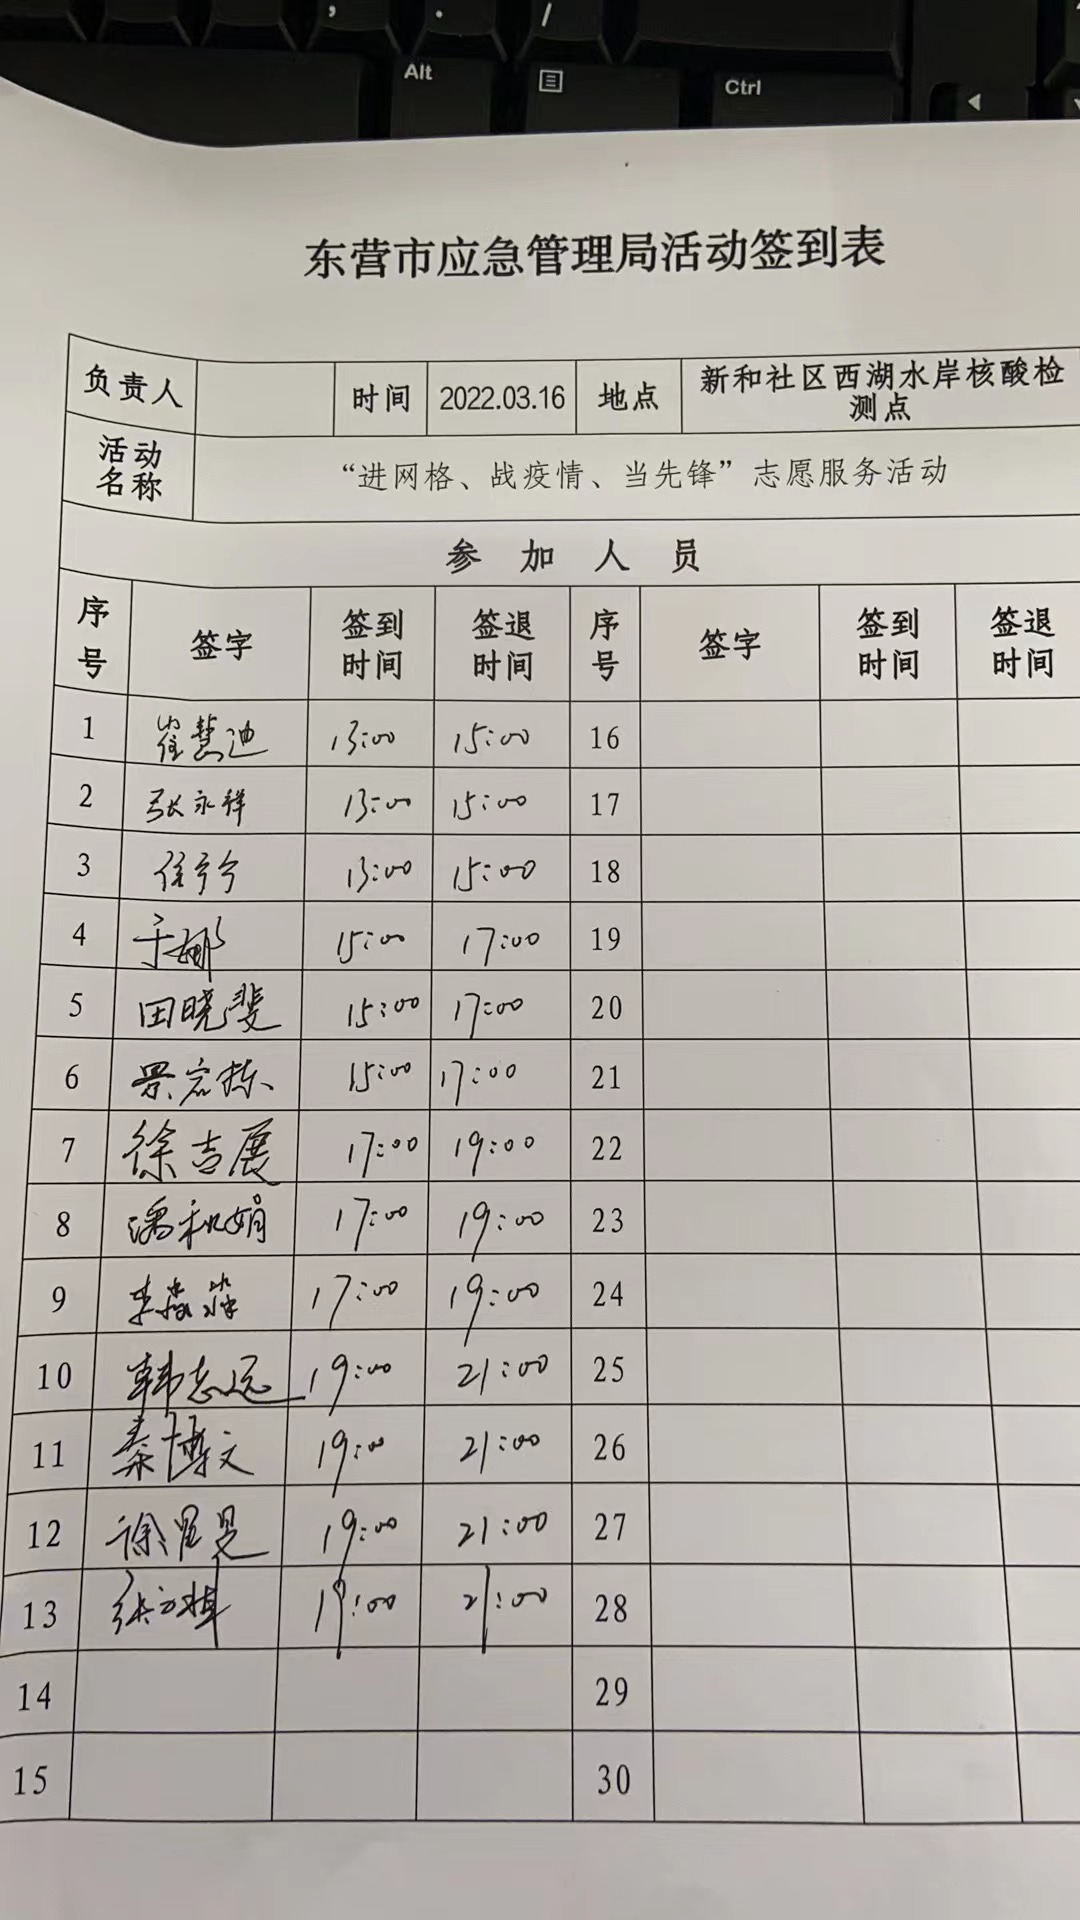 , . /
Alt Ctrl
东营市应急管理局活动签到表
负责人 时间 2022.03.16 地点 新和社区西湖水岸核酸检
测点
活动
名称
“进网格、战疫情、当先锋”志愿服务活动
参加人员
序号 签字 签到时间 签退时间 序号 签字 签到时间 签退时间
1 崔慧迪 13:00 15:00 16
2 张永祥 13:00 15:00 17
3 13:00 15:00 18
4 于娜 15:00 17:00 19
5 田晓斐 15:00 17:00 20
6 景宏栋 15:00 17:00 21
7 徐吉展 17:00 19:00 22
8 潘利娟 17:00 19:00 23
9 李 17:00 19:00 24
10 韩志远 19:00 21:00 25
11 秦博文 19:00 21:00 26
12 徐 19:00 21:00 27
13 张 19:00 21:00 28
14 29
15 30